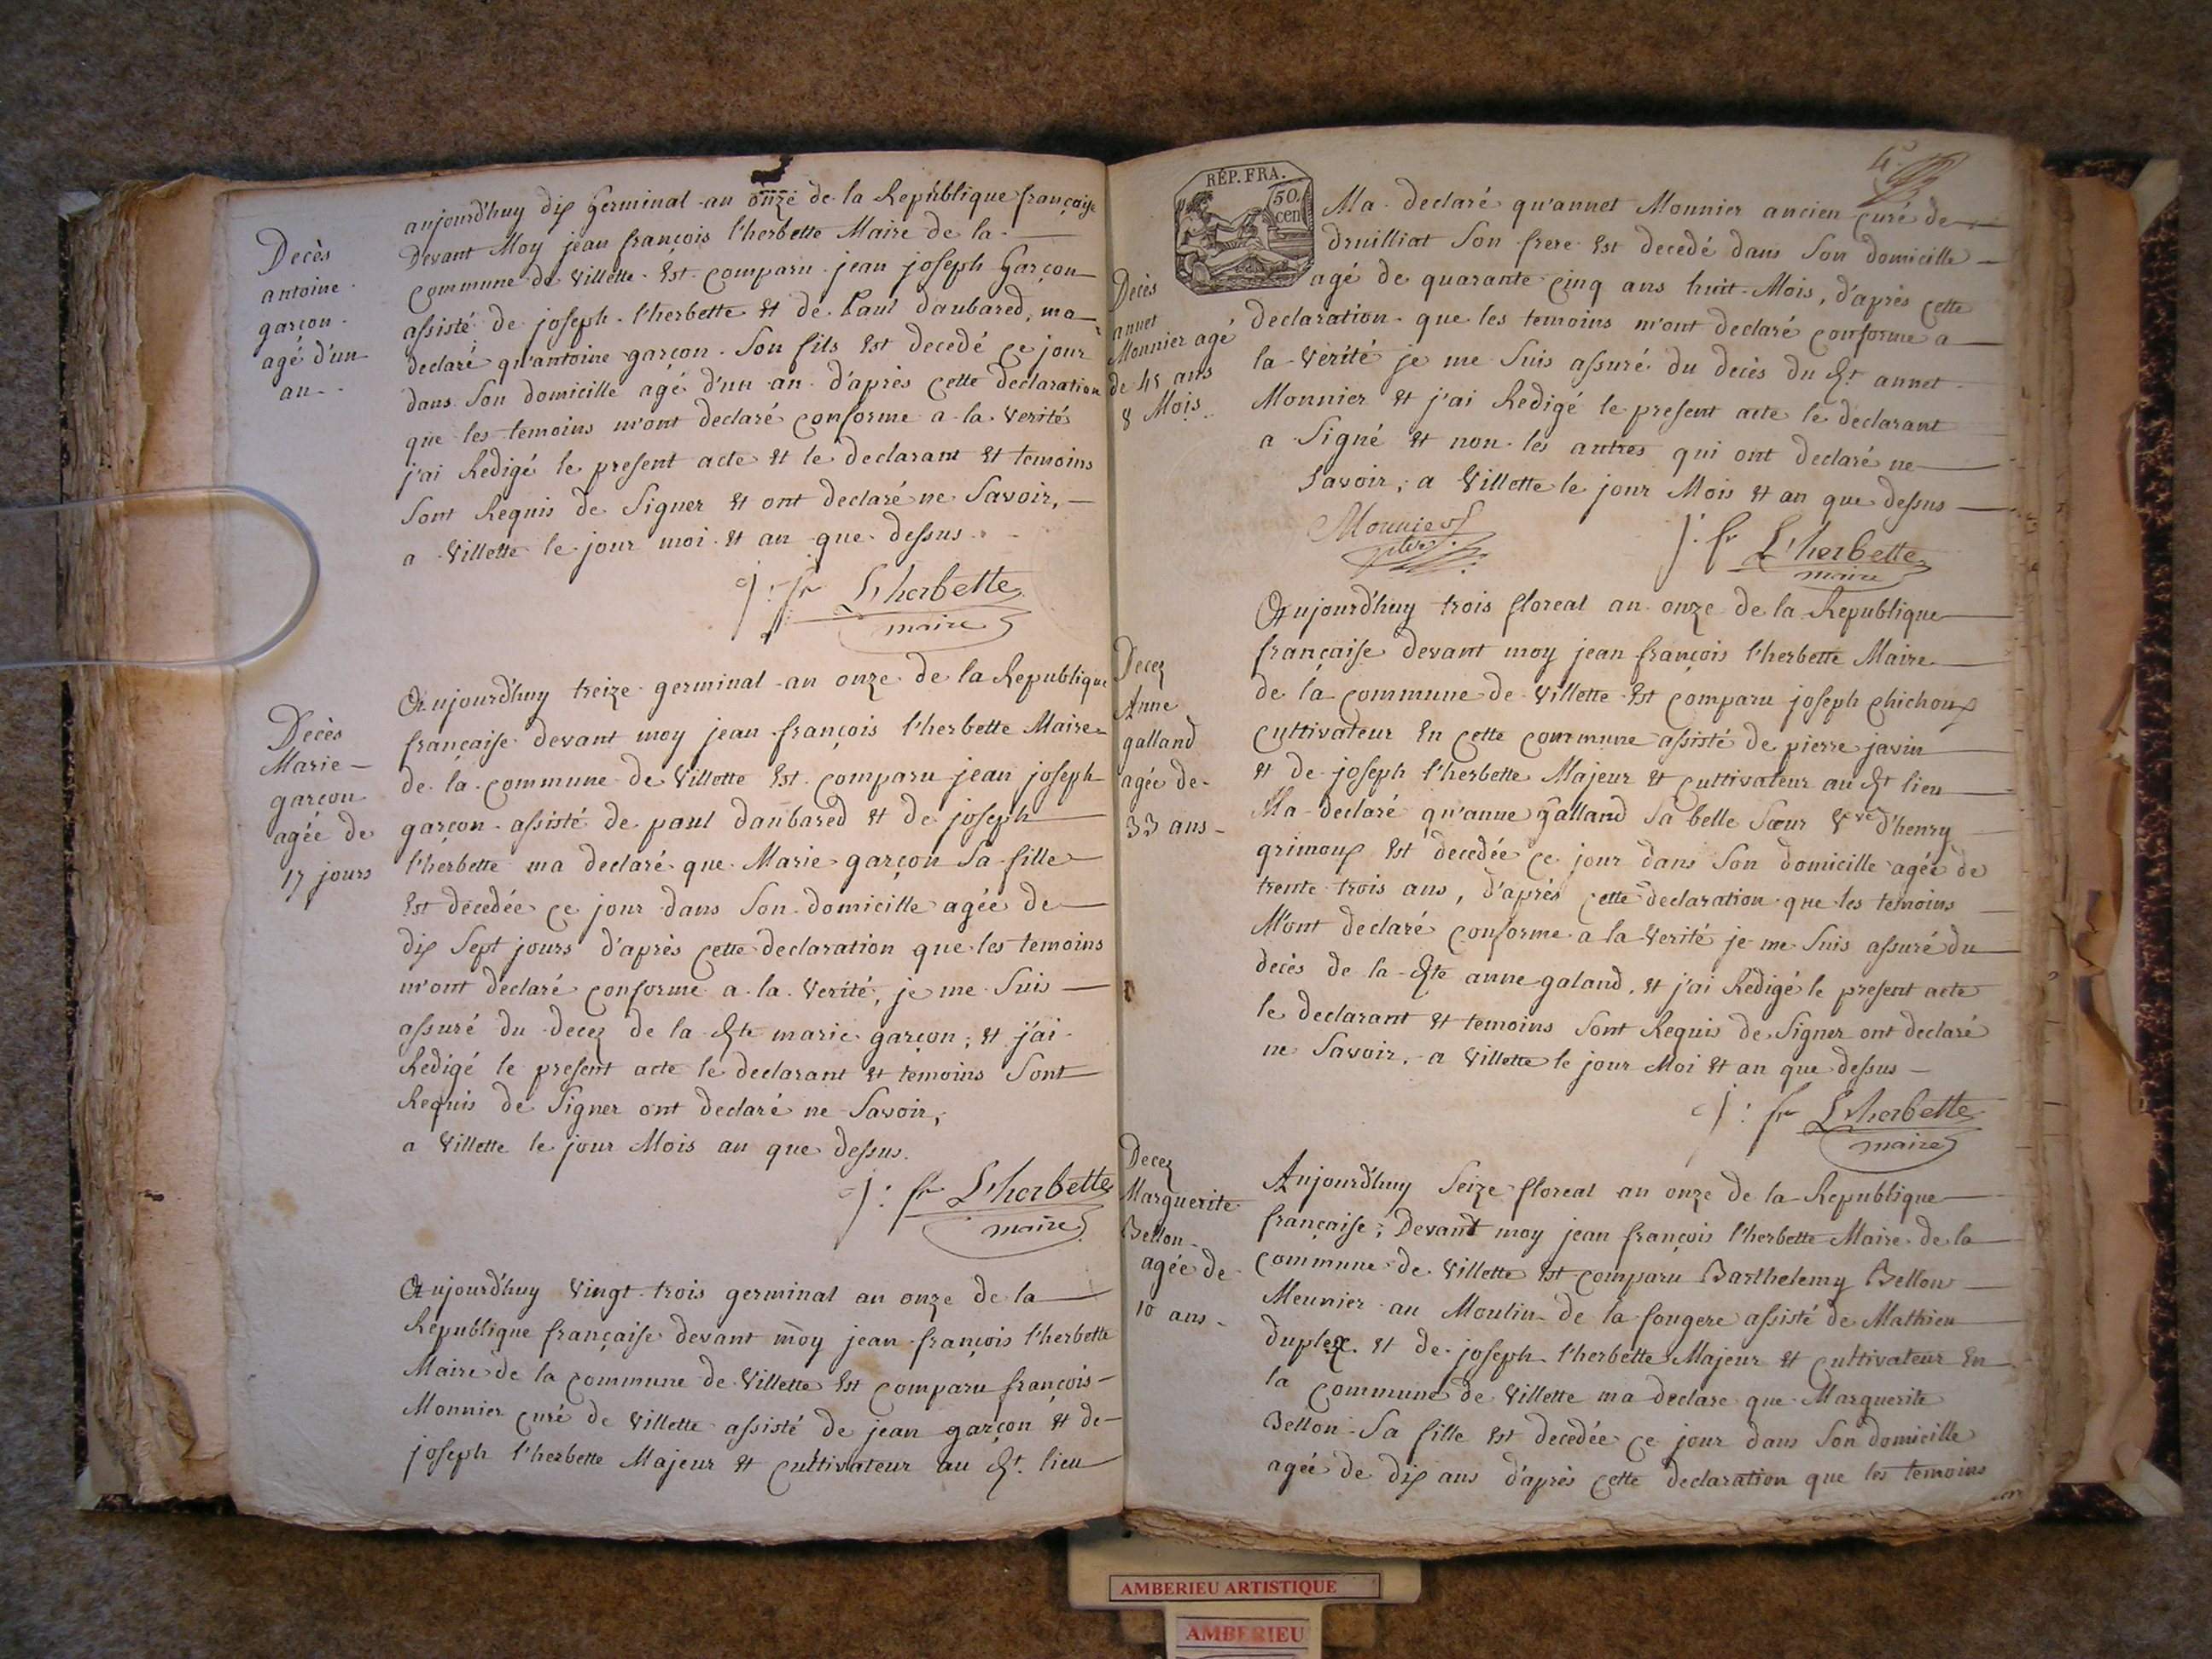 Decès
antoine
garcon
agé d'un
an
aujourd'huy dix Germinal an onze de la Republique françoise
Devant Moy jean françois l'herbette Maire de la
commune de Villette Est comparu jean joseph Garçon
assisté de joseph l'herbette Et de Paul daubared, ma
declaré qu'antoine garçon Son fils Est decedé ce jour
dans Son domicille agé d'un an d'après cette declaration
que les temoins m'ont declaré conforme a la Verité
j'ai Redigé le present acte Et le declarant Et temoins
Sont Requis de Signer Et ont declaré ne Savoir,
a Villette le jour moi Et an que dessus
j: fr L'herbette
maire
Decès
Marie
garçon
agée de
17 jours
Aujourd'huy treize germinal an onze de la Republique
française devant moy jean françois l'herbette Maire
de la commune de Villette Est comparu jean joseph
garçon assisté de paul daubared Et de joseph
l'herbette ma declaré que Marie garçon Sa fille
Est decedée ce jour dans Son domicille agée de
dix Sept jours d'après cette declaration que les temoins
m'ont declaré conforme a la Verité, je me Suis
assuré du decez de la dte marie garçon; Et j'ai
Redigé le present acte le declarant Et temoins Sont
Requis de Signer ont declaré ne Savoir,
a Villette le jour Mois an que dessus.
j: fr L'herbette
maire
Aujourd'huy Vingt trois germinal an onze de la
Republique française devant moy jean françois l'herbette
Maire de la commune de Villette Est comparu françois
Monnier curé de Villette assisté de jean garçon Et de
joseph l'herbette Majeur Et cultivateur au dt. lieu
4
RÉP. FRA.
50
cen
Decès
annet
Monnier agé
de 45 ans
8 Mois
Ma declaré qu'annet Monnier ancien curé de
druilliat Son frere Est decedé dans Son domicille
agé de quarante cinq ans huit Mois, d'après cette
declaration que les temoins m'ont declaré conforme a
la Verité je me Suis assuré du decès du dt annet
Monnier Et j'ai Redigé le present acte le declarant
a Signé Et non les autres qui ont declaré ne
Savoir, a Villette le jour Mois Et an que dessus
Monnier
j: fr L'herbette
maire
Decez
Anne
galland
agée de
33 ans
Aujourd'huy trois floreal an onze de la Republique
française devant moy jean françois l'herbette Maire
de la commune de Villette Est comparu joseph chichoux
cultivateur En cette commune assisté de pierre javin
Et de joseph l'herbette Majeur Et cultivateur au dt lieu
Ma declaré qu'anne galland Sa belle Sœur Veve d'henry
grimoux Est decedée ce jour dans Son domicille agée de
trente trois ans, d'après cette declaration que les temoins
M'ont declaré conforme a la Verité je me Suis assuré du
decès de la dte anne galand, Et j'ai Redigé le present acte
le declarant Et temoins Sont Requis de Signer ont declaré
ne Savoir, a Villette le jour Moi Et an que dessus
j: fr L'herbette
maire
Decez
Marguerite
Bellon
agée de
10 ans
Aujourd'huy Seize floreal an onze de la Republique
française; Devant moy jean françois l'herbette Maire de la
commune de Villette Est comparu Barthelemy Bellon
Meunier au Moulin de la fougere assisté de Mathieu
duplex Et de joseph l'herbette Majeur Et cultivateur En
la commune de Villette ma declare que Marguerite
Bellon Sa fille Est decedée ce jour dans Son domicille
agée de dix ans d'après cette declaration que les temoins
AMBERIEU ARTISTIQUE
AMBERIEU